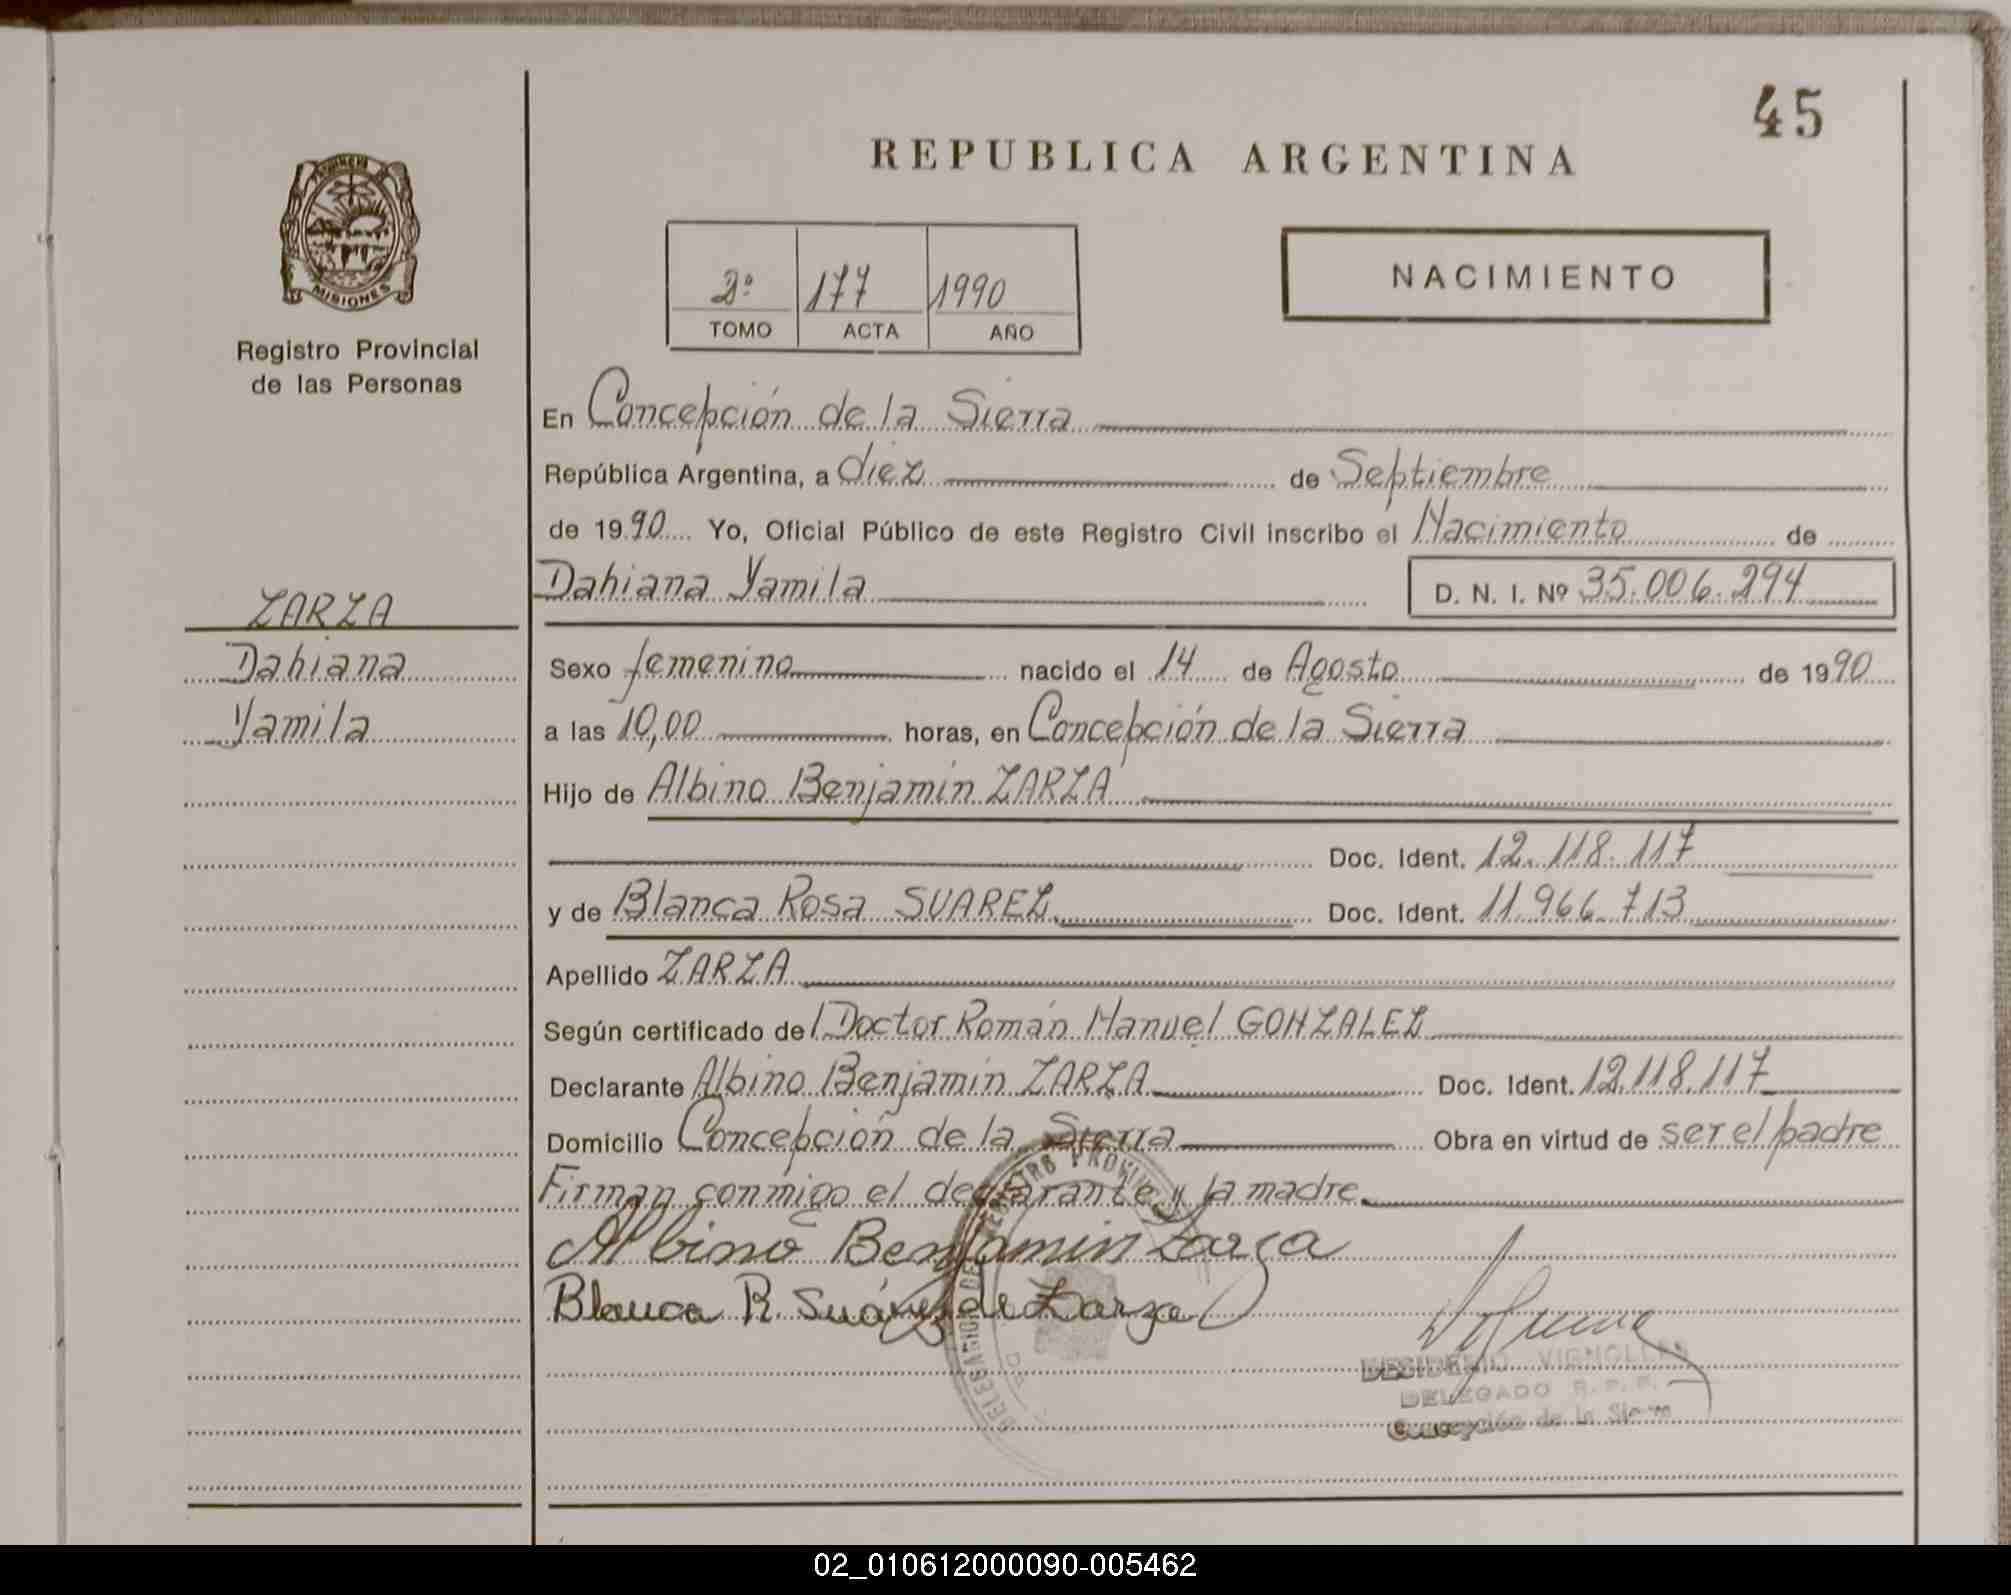 45
REPUBLICA ARGENTINA
PROVINCIA DE
MISIONES
Registro Provincial
de las Personas
2º 177 1990
TOMO ACTA AÑO
NACIMIENTO
En Concepción de la Sierra
República Argentina, a diez de Septiembre
de 1990 Yo, Oficial Público de este Registro Civil inscribo el Nacimiento de
Dahiana Yamila D. N. I. Nº 35.006.294
ZARZA
Dahiana
Yamila
Sexo femenino nacido el 14 de Agosto de 1990
a las 10,00 horas, en Concepción de la Sierra
Hijo de Albino Benjamín ZARZA
Doc. Ident. 12.118.117
y de Blanca Rosa SUAREZ Doc. Ident. 11.966.713
Apellido ZARZA
Según certificado del Doctor Román Manuel GONZALEZ
Declarante Albino Benjamín ZARZA Doc. Ident. 12.118.117
Domicilio Concepción de la Sierra Obra en virtud de ser el padre
Firman conmigo el declarante y la madre
Albino Benjamin Zarza
Blanca R. Suárez de Zarza
DELEGACION DEL REGISTRO PROVINCIAL
DESIDERIO VIGNOLLES
DELEGADO R. P. P.
Concepción de la Sierra
02_010612000090-005462